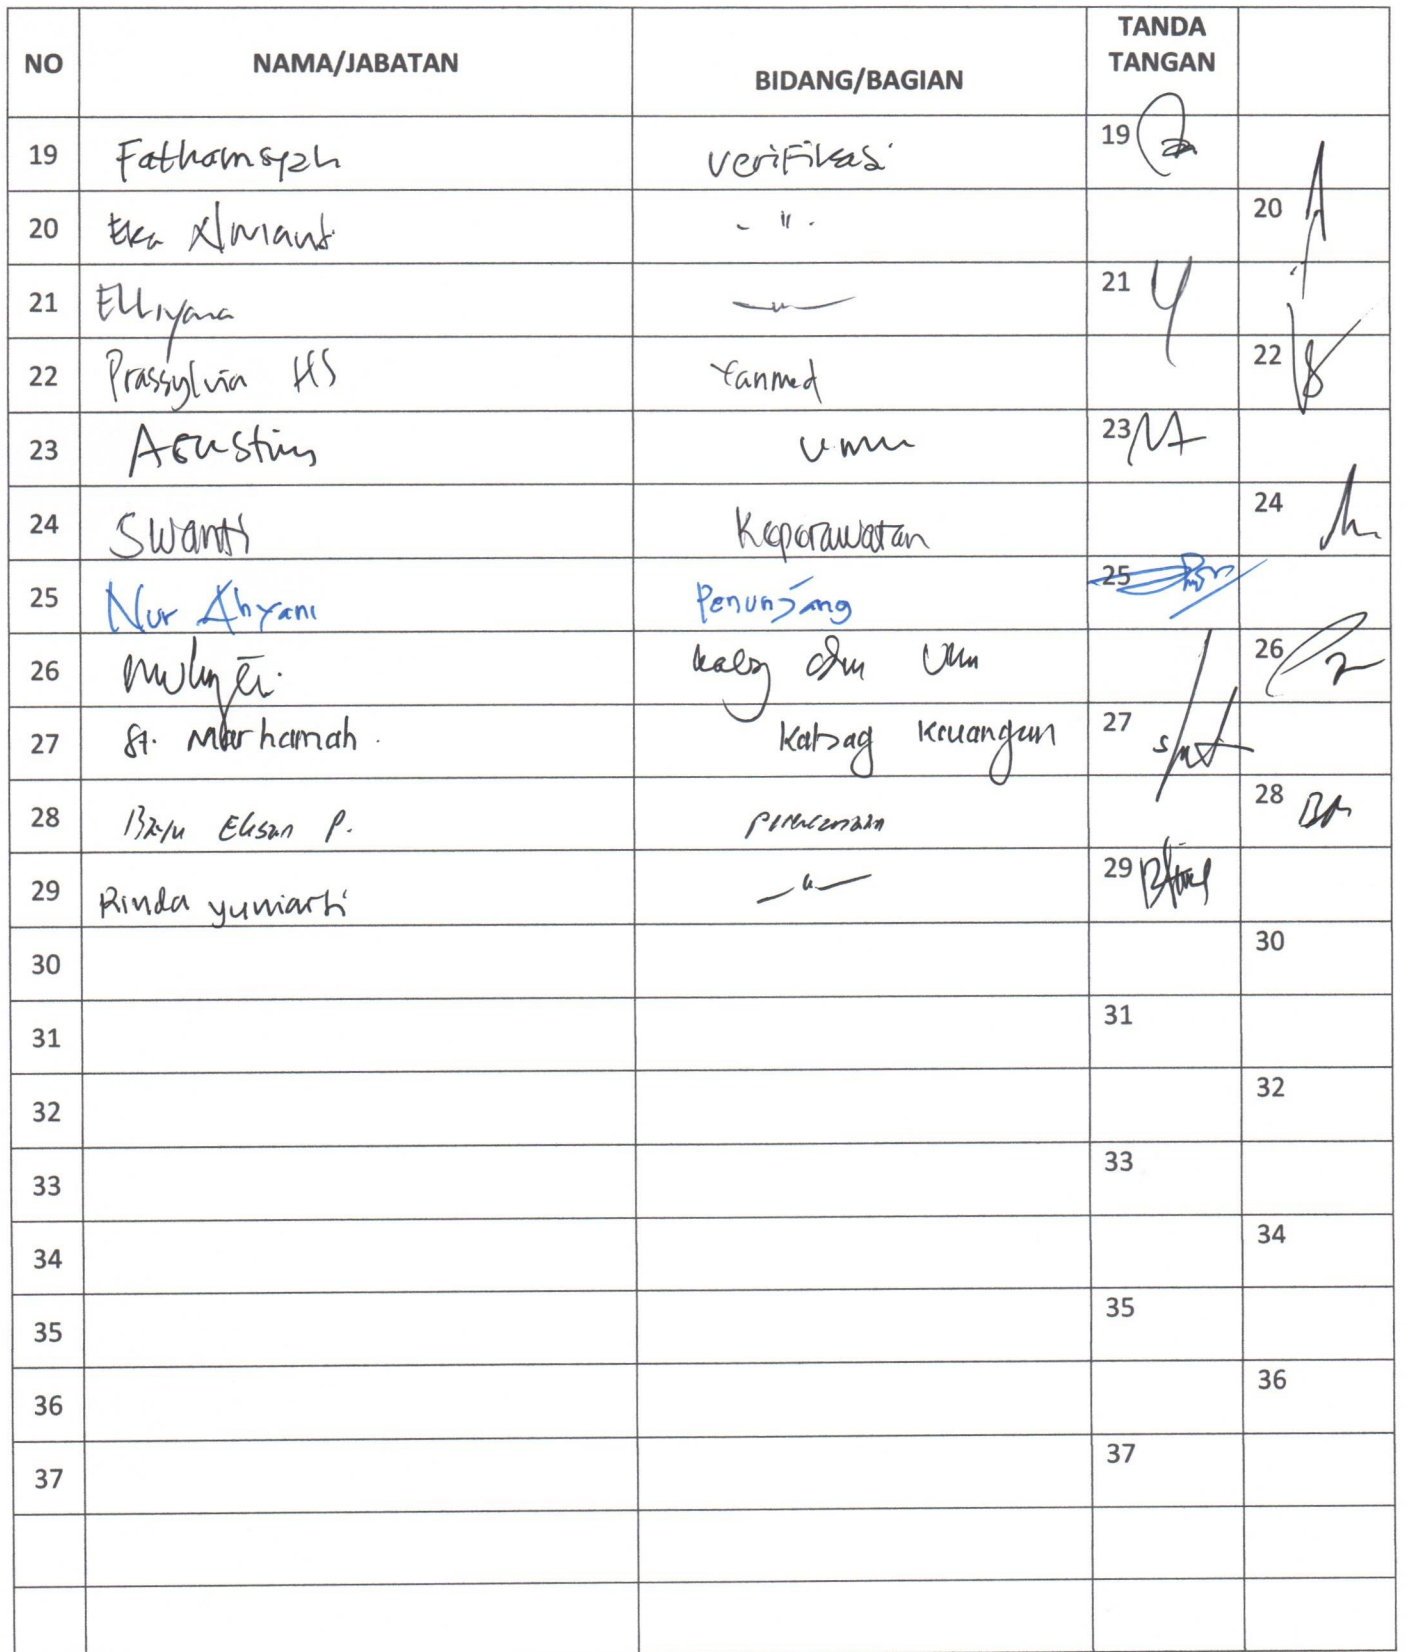 NO NAMA/JABATAN BIDANG/BAGIAN TANDA TANGAN
19 Fathamsyah Verifikasi 19
20 Eka - " - 20
21 Elliyana - " - 21
22 Prassylvia HS Yanmed 22
23 Agustins Umum 23
24 Swanti Keperawatan 24
25 Nur Ahyani Penunjang 25
26 26
27 St. Marhamah. Kabag Keuangan 27
28 P. 28
29 Rinda yuniarti - " - 29
30 30
31 31
32 32
33 33
34 34
35 35
36 36
37 37